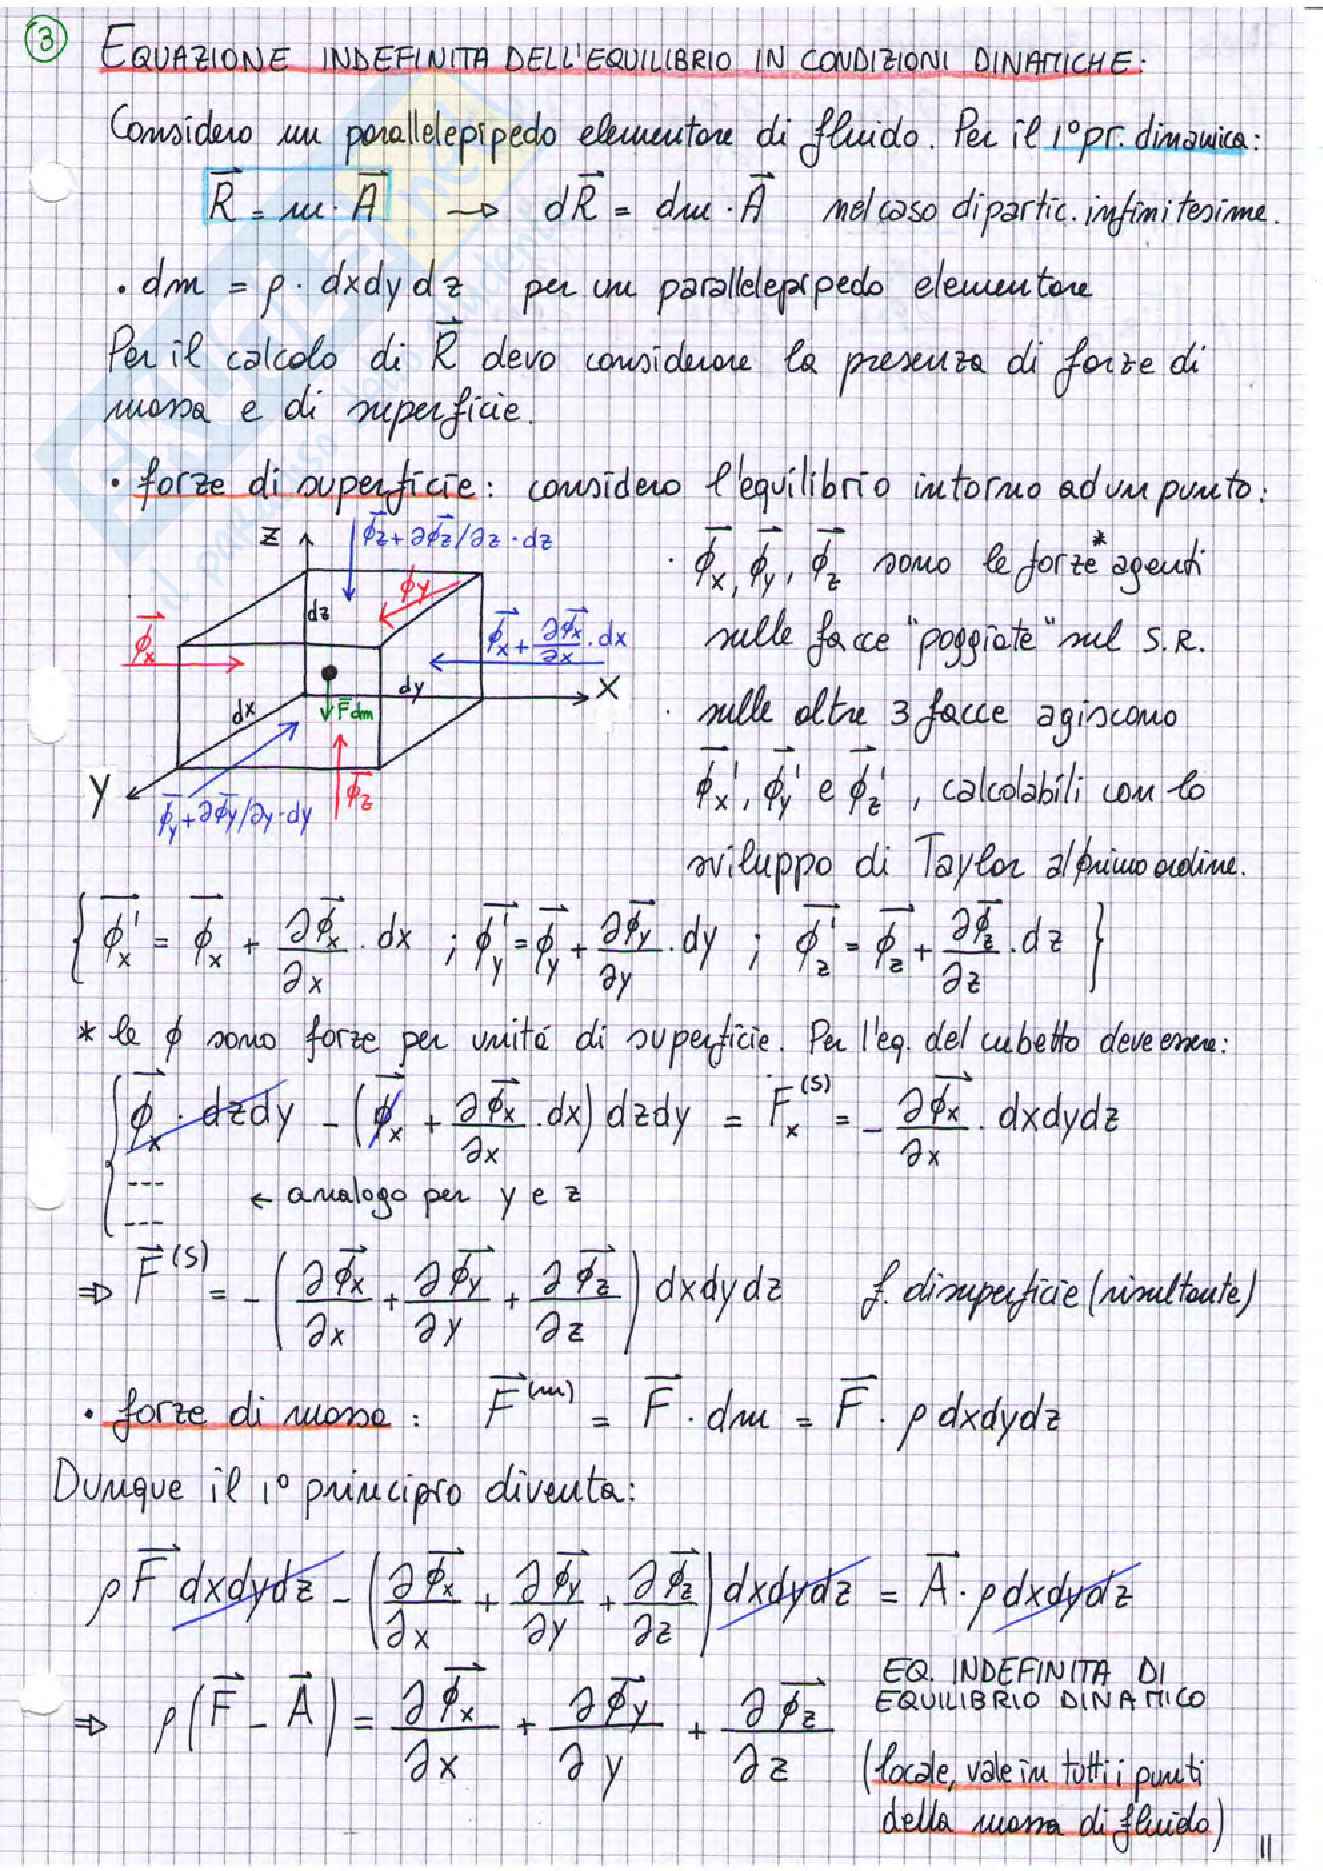 ③ EQUAZIONE INDEFINITA DELL'EQUILIBRIO IN CONDIZIONI DINAMICHE:
Considero un parallelepipedo elementare di fluido. Per il 1° pr. dinamica:
R⃗ = m · A⃗ → dR⃗ = dm · A⃗ nel caso di partic. infinitesime.
• dm = ρ · dxdydz per un parallelepipedo elementare
Per il calcolo di R⃗ devo considerare la presenza di forze di
massa e di superficie.
• forze di superficie: considero l'equilibrio intorno ad un punto:
z
ϕ⃗z + ∂ϕ⃗z/∂z · dz
ϕy
dz
ϕ⃗x
ϕ⃗x + ∂ϕ⃗x/∂x · dx
dy
x
dx
F⃗dm
y
ϕ⃗z
ϕ⃗y + ∂ϕ⃗y/∂y · dy
· ϕ⃗x, ϕ⃗y, ϕ⃗z sono le forze* agenti
sulle facce "poggiate" sul S.R.
· sulle altre 3 facce agiscono
ϕ⃗x', ϕ⃗y' e ϕ⃗z', calcolabili con lo
sviluppo di Taylor al primo ordine.
{ ϕ⃗x' = ϕ⃗x + ∂ϕ⃗x/∂x · dx ; ϕ⃗y' = ϕ⃗y + ∂ϕ⃗y/∂y · dy ; ϕ⃗z' = ϕ⃗z + ∂ϕ⃗z/∂z · dz }
* le ϕ sono forze per unità di superficie. Per l'eq. del cubetto deve essere:
{ ϕ⃗x · dzdy - (ϕ⃗x + ∂ϕ⃗x/∂x · dx) dzdy = Fx^(S) = - ∂ϕ⃗x/∂x · dxdydz
--- ← analogo per y e z
---
⇒ F⃗^(S) = - (∂ϕ⃗x/∂x + ∂ϕ⃗y/∂y + ∂ϕ⃗z/∂z) dxdydz f. di superficie (risultante)
• forze di massa: F⃗^(m) = F⃗ · dm = F⃗ · ρ dxdydz
Dunque il 1° principio diventa:
ρF⃗ dxdydz - (∂ϕ⃗x/∂x + ∂ϕ⃗y/∂y + ∂ϕ⃗z/∂z) dxdydz = A⃗ · ρ dxdydz
⇒ ρ(F⃗ - A⃗) = ∂ϕ⃗x/∂x + ∂ϕ⃗y/∂y + ∂ϕ⃗z/∂z
EQ. INDEFINITA DI
EQUILIBRIO DINAMICO
(locale, vale in tutti i punti
della massa di fluido)
11